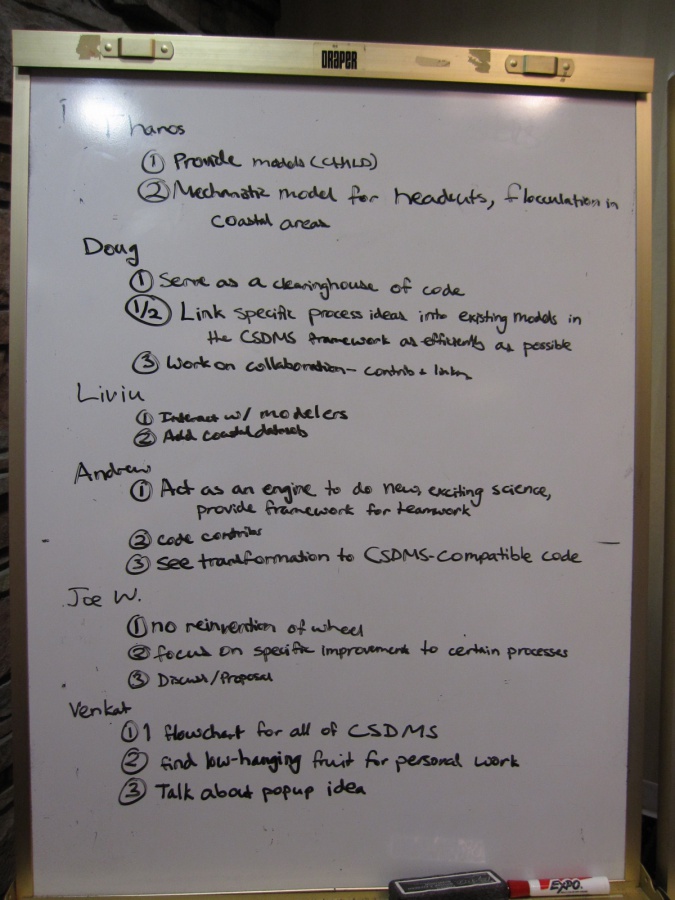 DRAPER
Thanos
① Provide models (CHILD)
② Mechanistic model for headcuts, flocculation in
coastal areas
Doug
① Serve as a clearinghouse of code
1/2 Link specific process ideas into existing models in
the CSDMS framework as efficiently as possible
③ Work on collaboration - contrib + linking
Liviu
① Interact w/ modelers
② Add coastal datasets
Andrew
① Act as an engine to do new, exciting science,
provide framework for teamwork
② code contribs
③ see transformation to CSDMS-compatible code
Joe W.
① no reinvention of wheel
② focus on specific improvement to certain processes
③ Discuss/Proposal
Venkat
① 1 flowchart for all of CSDMS
② find low-hanging fruit for personal work
③ Talk about popup idea
EXPO